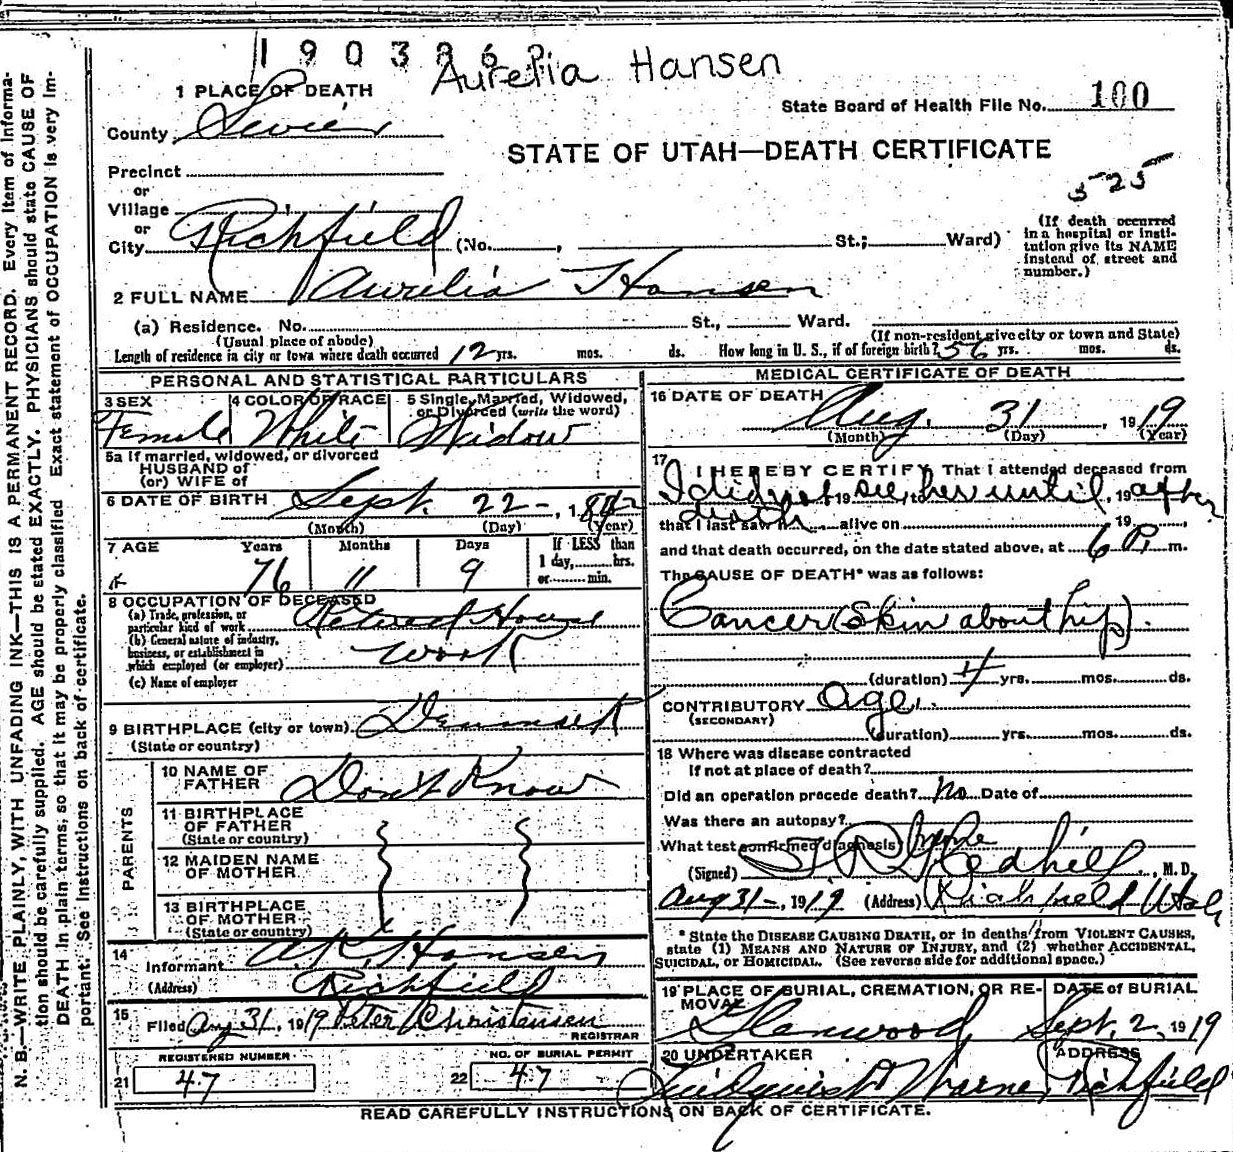 190386
Aurelia Hansen
1 PLACE OF DEATH
State Board of Health File No. 100
County Sevier
STATE OF UTAH—DEATH CERTIFICATE
Precinct
525
or
Village
or
City Richfield (No. , St.; Ward)
(If death occurred in a hospital or insti-
tution give its NAME
instead of street and
number.)
2 FULL NAME Aurelia Hansen
(a) Residence. No. St., Ward.
(Usual place of abode)
(If non-resident give city or town and State)
Length of residence in city or town where death occurred 12 yrs. mos. ds. How long in U. S., if of foreign birth? 56 yrs. mos. ds.
PERSONAL AND STATISTICAL PARTICULARS
3 SEX
Female
4 COLOR OR RACE
White
5 Single, Married, Widowed,
or Divorced (write the word)
Widow
5a If married, widowed, or divorced
HUSBAND of
(or) WIFE of
6 DATE OF BIRTH Sept. 22 - , 1842
(Month) (Day) (Year)
7 AGE Years Months Days If LESS than
76 11 9 1 day, hrs.
or min.
8 OCCUPATION OF DECEASED
(a) Trade, profession, or
particular kind of work Retired House
(b) General nature of industry,
business, or establishment in
which employed (or employer) work
(c) Name of employer
9 BIRTHPLACE (city or town) Denmark
(State or country)
PARENTS
10 NAME OF
FATHER Don't Know
11 BIRTHPLACE
OF FATHER
(State or country)
12 MAIDEN NAME
OF MOTHER
13 BIRTHPLACE
OF MOTHER
(State or country)
14
Informant A. K. Hansen
(Address) Richfield
15
Filed Aug 31, 1919 Peter Christensen
REGISTRAR
REGISTERED NUMBER
21 47
NO. OF BURIAL PERMIT
22 47
MEDICAL CERTIFICATE OF DEATH
16 DATE OF DEATH
Aug. 31, 1919
(Month) (Day) (Year)
17
I HEREBY CERTIFY, That I attended deceased from
I did not 19 see her until, 19 after
death
that I last saw h alive on 19 ,
and that death occurred, on the date stated above, at 6 P. m.
The CAUSE OF DEATH* was as follows:
Cancer (Skin about hip).
(duration) 4 yrs. mos. ds.
CONTRIBUTORY age.
(SECONDARY)
(duration) yrs. mos. ds.
18 Where was disease contracted
if not at place of death?
Did an operation precede death? No Date of
Was there an autopsy?
What test confirmed diagnosis?
(Signed) Gledhill, M. D.
Aug 31-, 1919 (Address) Richfield Utah
* State the DISEASE CAUSING DEATH, or in deaths from VIOLENT CAUSES,
state (1) MEANS AND NATURE OF INJURY, and (2) whether ACCIDENTAL,
SUICIDAL, or HOMICIDAL. (See reverse side for additional space.)
19 PLACE OF BURIAL, CREMATION, OR RE-
MOVAL
Glenwood
DATE of BURIAL
Sept. 2, 1919
20 UNDERTAKER
Lindquist & Warne,
ADDRESS
Richfield
READ CAREFULLY INSTRUCTIONS ON BACK OF CERTIFICATE.
N. B.—WRITE PLAINLY, WITH UNFADING INK—THIS IS A PERMANENT RECORD. Every item of informa-
tion should be carefully supplied. AGE should be stated EXACTLY. PHYSICIANS should state CAUSE OF
DEATH in plain terms, so that it may be properly classified. Exact statement of OCCUPATION is very im-
portant. See instructions on back of certificate.